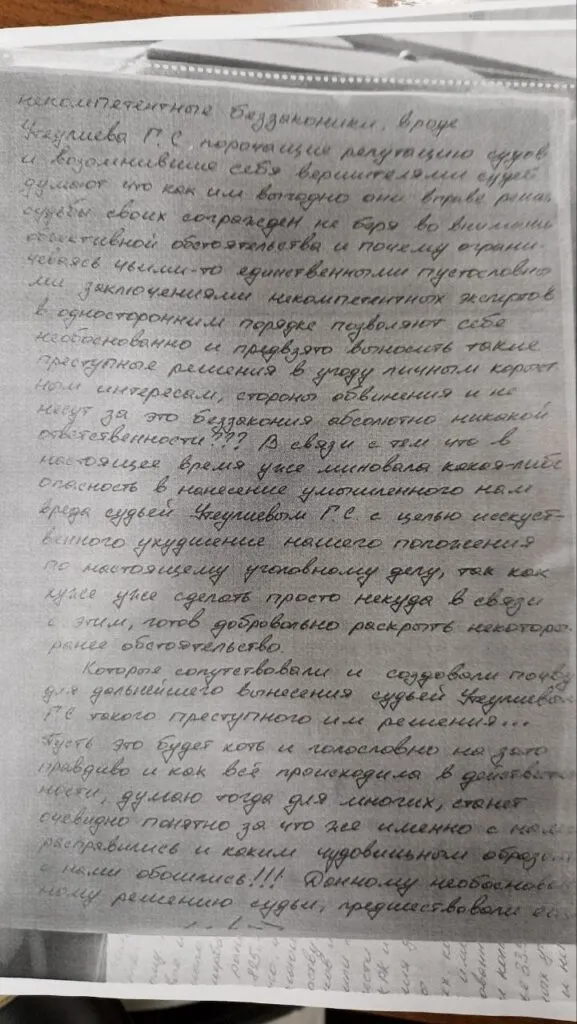 некомпетентные беззаконики, вроде
Утеулиева Г.С. порочащие репутацию судов
и возомнившие себя вершителями судеб
думают что как им выгодно они вправе
судьбы своих сограждан не беря во внимание
объективной обстоятельства и почему ограни-
чеваясь чьими-то единственными пустословны
ми заключениями некомпетентных экспертов
в одностороннем порядке позволяют себе
необоснованно и предвзято выносить такие
преступные решения в угоду личным корыст
ным интересам, стороны обвинения и не
несут за это беззакония абсолютно никакой
ответственности??? В связи с тем что в
настоящее время уже миновала какая-либо
опасность в нанесение умышленного нам
вреда судьёй Утеулиевым Г.С. с целью исскуст-
венного ухудшение нашего положения
по настоящему уголовному делу, так как
хуже уже сделать просто некуда в связи
с этим, готов добровольно раскрыть некоторы
ранее обстоятельство.
Которые сопутствовали и создовали почву
для дальнейшего вынесения судьёй Утеулиевым
Г.С такого преступного им решения...
Пусть это будет хоть и голословно но зато
правдиво и как всё происходила в действитель
ности, думаю тогда для многих, станет
очевидно понятно за что же именно с нами
расправились и каким чудовищным образом
с нами обошлись!!! Данному необоснован
ному решению судьи, предшествовали